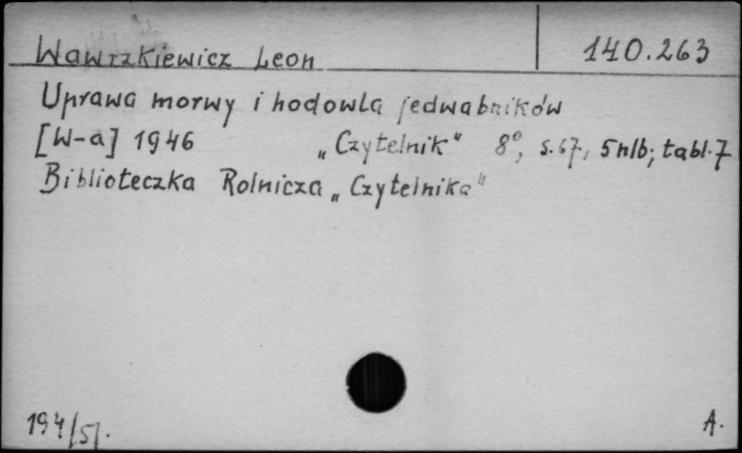 Wawrzkiewicz Leon 140.263
Uprawa morwy i hodowla jedwabników
[W-a] 1946 „Czytelnik" 8°, s.67, 5nlb; tabl.7
Biblioteczka Rolnicza „Czytelnika"
194/51. A.